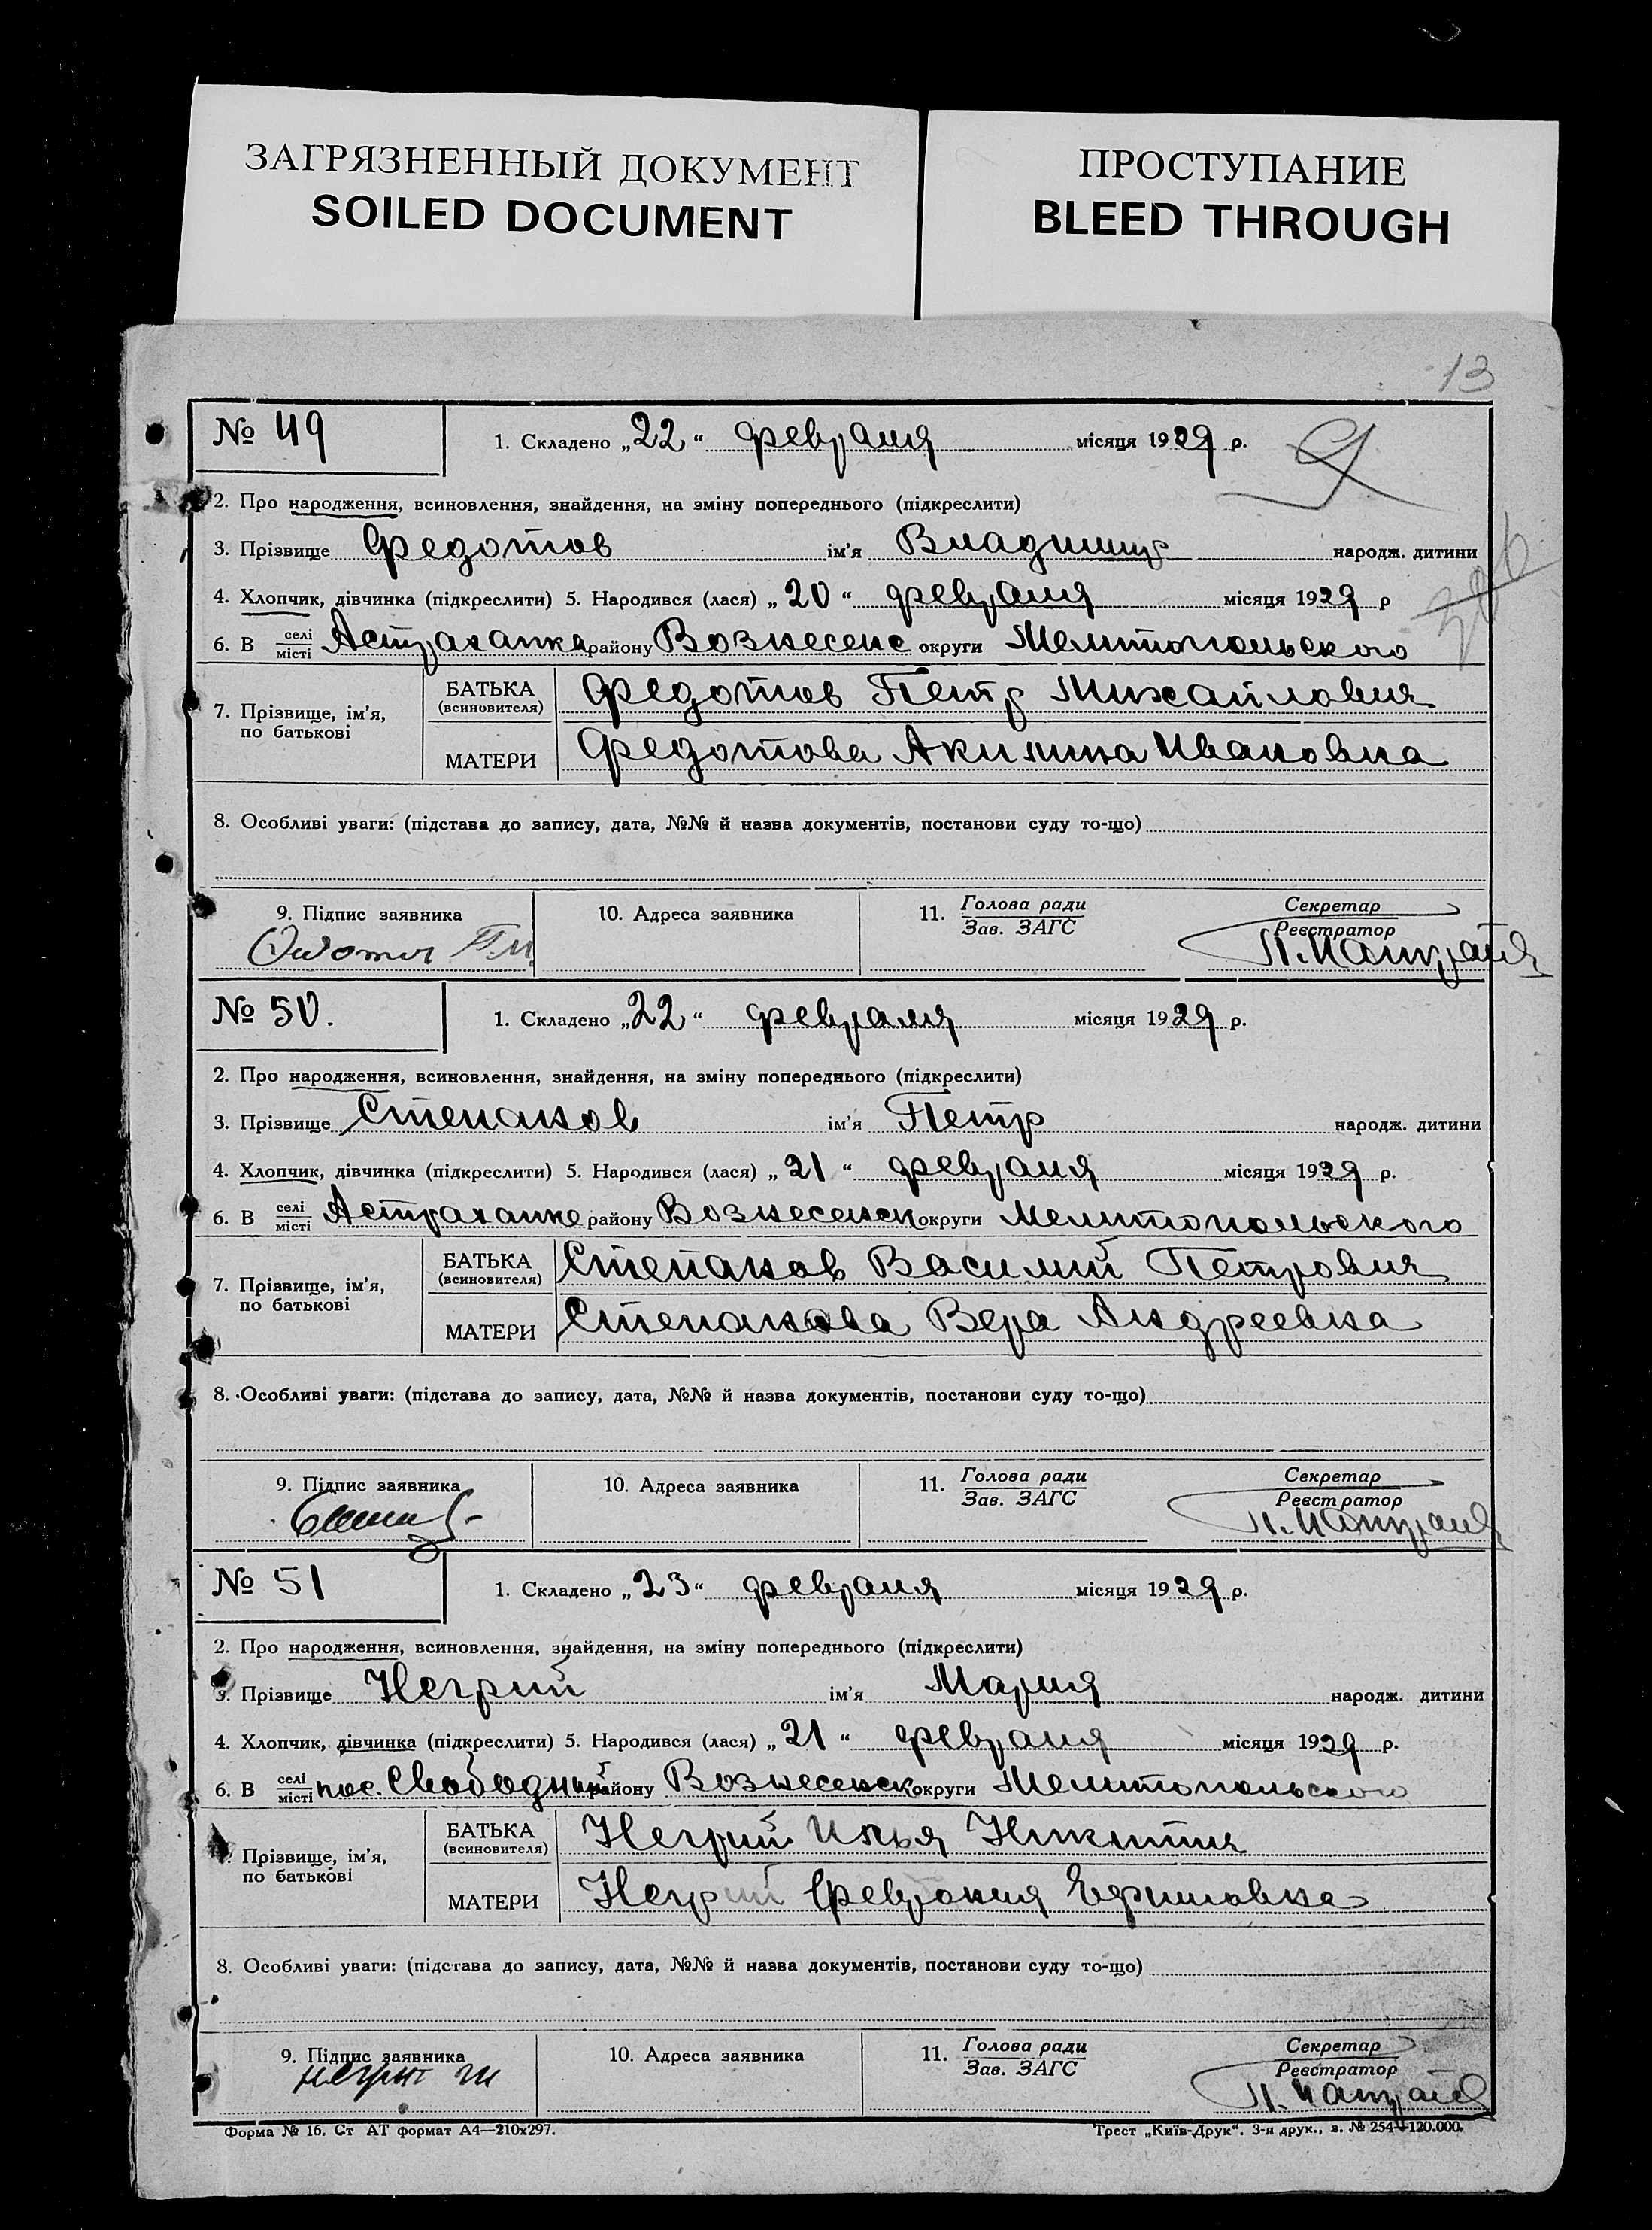 ЗАГРЯЗНЕННЫЙ ДОКУМЕНТ
SOILED DOCUMENT
ПРОСТУПАНИЕ
BLEED THROUGH
13
№ 49
1. Складено „22“ февраля місяця 1929 р.
2. Про народження, всиновлення, знайдення, на зміну попереднього (підкреслити)
3. Прізвище Федотов ім'я Владимир народж. дитини
4. Хлопчик, дівчинка (підкреслити) 5. Народився (лася) „20“ февраля місяця 1929 р
6. В селі місті Астраханка району Вознесенс округи Мелитопольского
7. Прізвище, ім'я, по батькові
БАТЬКА (всиновителя) Федотов Петр Михайлович
МАТЕРИ Федотова Акилина Ивановна
8. Особливі уваги: (підстава до запису, дата, №№ й назва документів, постанови суду то-що)
9. Підпис заявника 10. Адреса заявника 11. Голова ради Зав. ЗАГС Секретар Реєстратор
№ 50.
1. Складено „22“ февраля місяця 1929 р.
2. Про народження, всиновлення, знайдення, на зміну попереднього (підкреслити)
3. Прізвище Степанов ім'я Петр народж. дитини
4. Хлопчик, дівчинка (підкреслити) 5. Народився (лася) „21“ февраля місяця 1929 р.
6. В селі місті Астраханке району Вознесенск округи Мелитопольского
7. Прізвище, ім'я, по батькові
БАТЬКА (всиновителя) Степанов Василий Петрович
МАТЕРИ Степанова Вера Андреевна
8. Особливі уваги: (підстава до запису, дата, №№ й назва документів, постанови суду то-що)
9. Підпис заявника 10. Адреса заявника 11. Голова ради Зав. ЗАГС Секретар Реєстратор
№ 51
1. Складено „23“ февраля місяця 1929 р.
2. Про народження, всиновлення, знайдення, на зміну попереднього (підкреслити)
3. Прізвище Негрий ім'я Мария народж. дитини
4. Хлопчик, дівчинка (підкреслити) 5. Народився (лася) „21“ февраля місяця 1929 р.
6. В селі місті пос. Свободный району Вознесенск округи Мелитопольского
Прізвище, ім'я, по батькові
БАТЬКА (всиновителя) Негрий Илья Никитич
МАТЕРИ Негрий Феврония Ефимовна
8. Особливі уваги: (підстава до запису, дата, №№ й назва документів, постанови суду то-що)
9. Підпис заявника 10. Адреса заявника 11. Голова ради Зав. ЗАГС Секретар Реєстратор
Форма № 16. Ст АТ формат А4—210х297.
Трест „Київ-Друк“. 3-я друк., з. № 254—120.000.